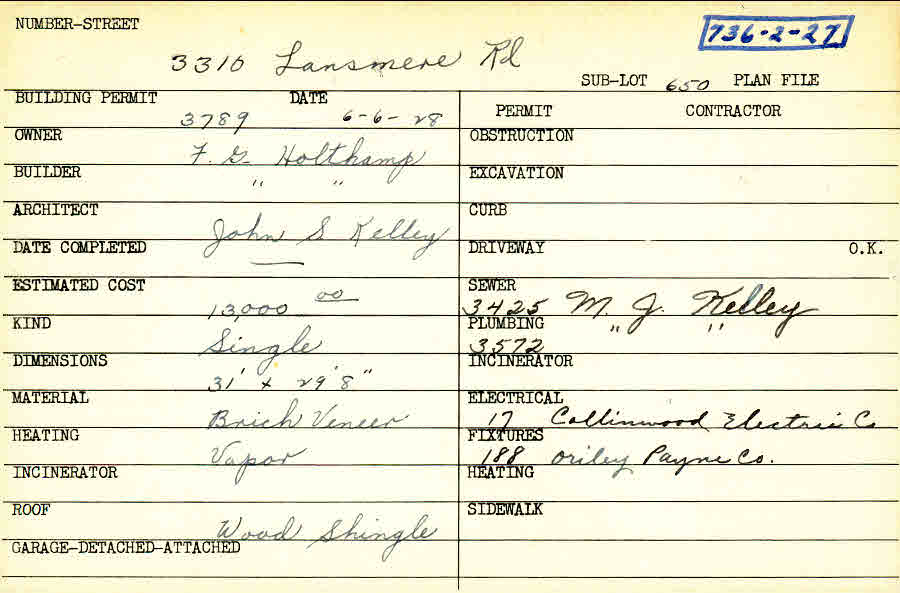 NUMBER-STREET
736-2-27
3310 Lansmere Rd
SUB-LOT 650 PLAN FILE
BUILDING PERMIT DATE
3789 6-6-28
OWNER
F. G. Holtkamp
BUILDER
" "
ARCHITECT
John S Kelley
DATE COMPLETED
—
ESTIMATED COST
13,000 00
KIND
Single
DIMENSIONS
31' x 29' 8"
MATERIAL
Brick Veneer
HEATING
Vapor
INCINERATOR
ROOF
Wood Shingle
GARAGE-DETACHED-ATTACHED
PERMIT CONTRACTOR
OBSTRUCTION
EXCAVATION
CURB
DRIVEWAY O.K.
SEWER
3425 M. J. Kelley
PLUMBING " "
3572
INCINERATOR
ELECTRICAL
17 Collinwood Electric Co
FIXTURES
188 Oriley Payne Co.
HEATING
SIDEWALK